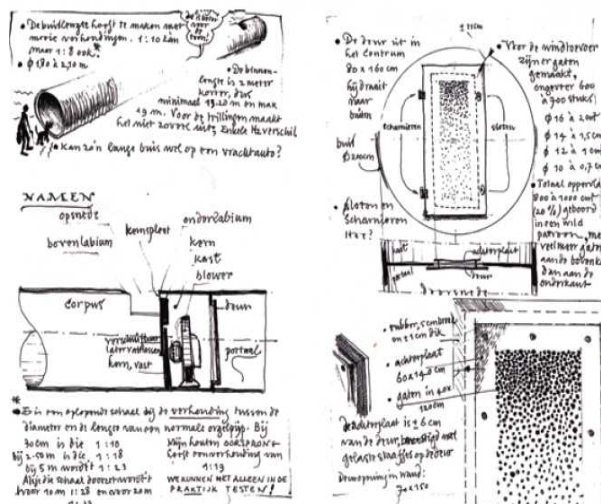 • De buislengte hoeft te maken met
mooie verhoudingen. 1:10 kan
maar 1:8 ook.
• Ø 1,80 à 2,10 m
• De binnen-
lengte is 2 meter
korter, dus
minimaal 19.20 m en max
19 m. Voor de trillingen maakt
het niet zoveel uit, enkele Hz verschil
• Kan zo'n lange buis wel op een vrachtauto?
NAMEN
opsnede
kernspleet
onderlabium
bovenlabium
kern
kast
blower
corpus
deur
verschuifbaar
kern, vast
portaal
• Er is een oplopende schaal bij de verhouding tussen de
diameter en de lengte van een normale orgelpijp. Bij
30 cm is die 1:10
bij 2.50 m is die 1:18
bij 5 m wordt 1:23
Als je die schaal doorzet wordt
voor 10 m 1:28 en voor 20 m
Mijn houten OORSPRONG
heeft een verhouding van
1:13
WE KUNNEN HET ALLEEN IN DE
PRAKTIJK TESTEN!
• De deur zit in
het centrum
80 x 160 cm
hij draait
naar
buiten
scharnieren
sloten
buis
Ø 200 cm
• Sloten en
Scharnieren
Hoe?
• Voor de windtoevoer
zijn er gaten
gemaakt,
ongeveer 600
à 900 stuks
Ø 16 à 2 cm²
Ø 14 à 1,5 cm
Ø 12 à 1 cm
Ø 10 à 0,7
• Totaal oppervla
800 à 1000 cm²
(20 %) geboord
in een wild
patroon, met
veel meer gaten
aan de bovenka
dan aan de
onderkant
kast
achterplaat
portaal
deur
doorsnede
• rubber, rondom
en ± 1 cm dik
• achterplaat
60 x 140 cm
• gaten in 40 x
120 cm
de achterplaat is ± 6 cm
van de deur, bevestigd met
gelaste staafjes op de deur
Deuropening in wand:
70 x 150